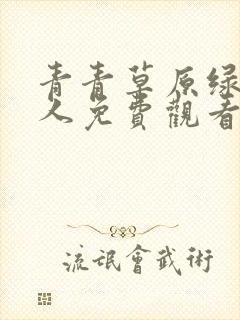 青青草原绿
人免費觀看
流氓會武術